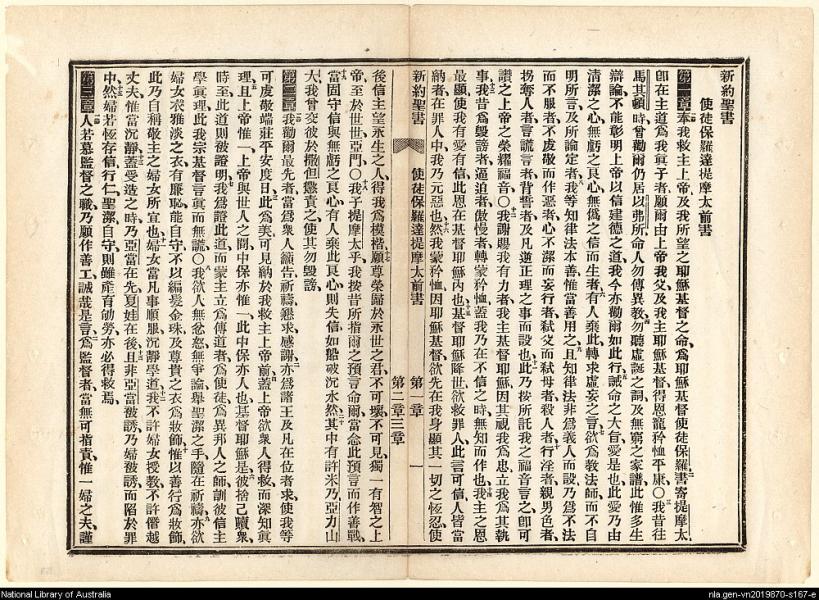 新約聖書
使徒保羅達提摩太前書
第一章 奉我救主上帝及我所望之耶穌基督之命、爲耶穌基督使徒保羅書寄提摩太
卽在主道爲我眞子者、願爾由上帝我父及我主耶穌基督得恩寵矜恤平康〇我昔往
馬其頓時、曾勸爾仍居以弗所、命人勿傳異教、勿聽虛誕之詞、及無窮之家譜、此惟多生
辯論、不能彰明上帝以信建德之道、我今亦勸爾如此行、誡命之大旨、愛是也、此愛乃由
清潔之心、無虧之良心、無僞之信而生者、有人棄此、轉求虛妄之言、欲爲教法師、而不自
明所言、及所論定者、我等知律法本善、惟當善用之、且知律法非爲義人而設、乃爲不法
而不服者、不虔敬而作惡者、心不潔而妄行者、弑父而弑母者、殺人者、行淫者、親男色者、
拐奪人者、言謊言者、背誓者、及凡逆正理之事而設也、此乃按所託我之福音言之、卽可
讚之上帝之榮耀福音〇我謝賜我有力者、我主基督耶穌、因其視我爲忠、立我爲其執
事、我昔爲毀謗者、逼迫者、傲慢者、轉蒙矜恤、蓋我乃在不信之時、無知而作也、我主之恩
最顯、使我有愛有信、此恩在基督耶穌內也、基督耶穌降世、欲救罪人、此言可信、人皆當
納者、在罪人中、我乃元惡也、然我蒙矜恤、因耶穌基督欲先在我身、顯其一切之恆忍、使
新約聖書 使徒保羅達提摩太前書 第一章 一
第二章三章
後信主望永生之人、得我爲模楷、願尊榮歸於永世之君、不可壞、不可見、獨一有智之上
帝、至於世世、亞門〇我子提摩太乎、我按昔所指爾之預言命爾、當念此預言而作善戰、
當固守信與無虧之良心、有人棄此良心、則失信、如船破沉水然、其中有許米乃亞力山
大、我曾交彼於撒但、懲責之、使其勿毀謗、
第二章 我勸爾最先者、當爲衆人籲告、祈禱、懇求、感謝、亦爲諸王、及凡在位者求、使我等
可虔敬端莊、平安度日、此爲美、可見納於我救主上帝前、蓋上帝欲衆人得救、而深知眞
理、且上帝惟一、上帝與世人之間中保亦惟一、此中保亦人也、基督耶穌是、彼捨己贖衆、
時至、此道則被證明、我爲證此道而蒙主立爲傳道者、爲使徒、爲異邦人之師、訓彼信主
學眞理、此我宗基督言眞而無謊〇我欲人無忿恕、無爭論、舉聖潔之手、隨在祈禱、亦欲
婦女衣雅淡之衣、有廉恥、能自守、不以編髮金珠、及尊貴之衣爲妝飾、惟以善行爲妝飾、
此乃自稱敬主之婦女所宜也、婦女當凡事順服、沉靜學道、我不許婦女授教、不許僭越
丈夫、惟當沉靜、蓋受造之時、乃亞當在先、夏娃在後、且非亞當被誘、乃婦被誘、而陷於罪
中、然婦若恆存信行仁、聖潔自守、則雖產育劬勞、亦必得救焉、
第三章 人若慕監督之職、乃願作善工、誠哉是言、爲監督者、當無可指責、惟一婦之夫、謹
National Library of Australia
nla.gen-vn2019870-s167-e